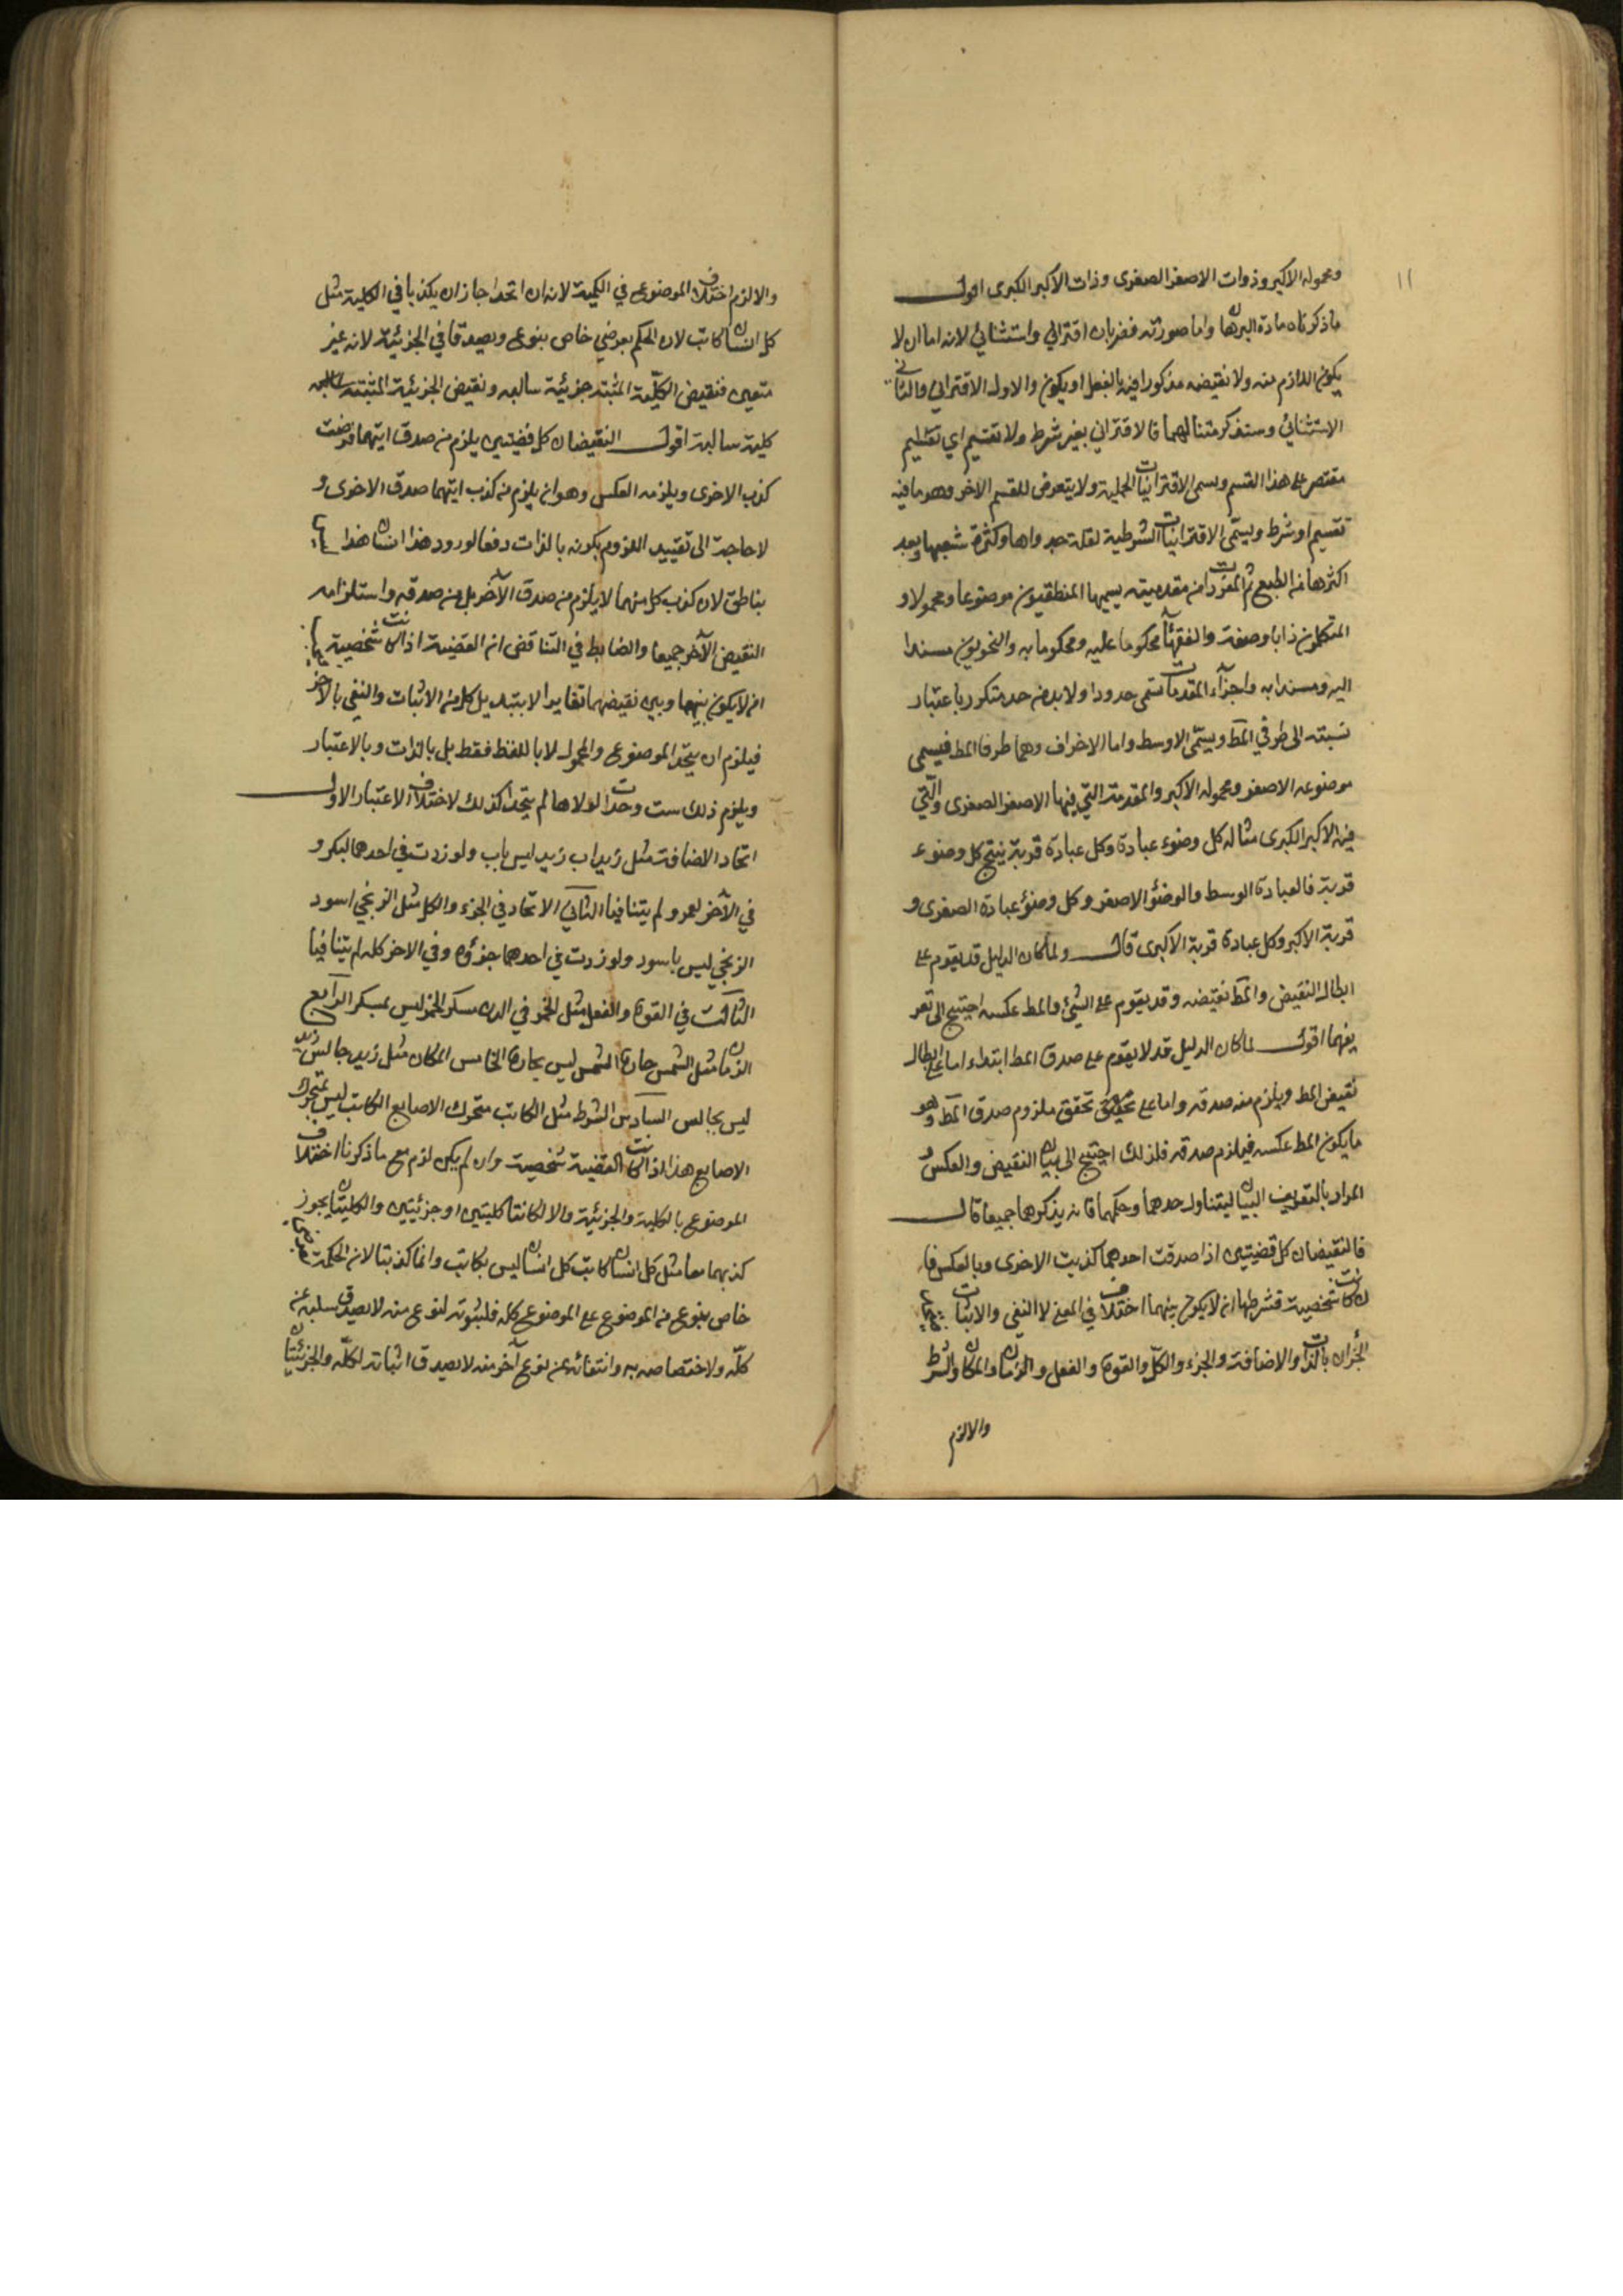 ١١
ومحموله الاكبر وذوات الاصغر الصغرى وذات الاكبر الكبرى اقول
ما ذكرناه مادة البرهان واما صورته فضربان اقتراني واستثنائي لانه اما ان لا
يكون اللازم منه ولا نقيضه مذكورا فيه بالفعل او يكون والاول الاقتراني والثاني
الاستثنائي وسنذكر مثنا لهما فالاقتراني بغير شرط ولا تقسيم اي تقسيم
مقتصر على هذا القسم ويسمى الاقترانيات الحملية ولا يتعرض للقسم الاخر وهو ما فيه
تقسيم او شرط ويسمى الاقترانيات الشرطية لقلة جدواها وكثرة شعبها وبعد
اكثرها من الطبع ثم المفردا من مقدمتيه يسميها المنطقيون موضوعا ومحمولا و
المتكلمون ذاتا وصفة والفقهاء محكوما عليه ومحكوما به والنحويون مسندا
اليه ومسندا به واجزاء المقدمات تسمى حدودا ولا بد من حد متكرر باعتبار
نسبته الى طرفي المط ويسمى الاوسط واما الاطراف وهما طرفا المط فيسمى
موضوعه الاصغر ومحموله الاكبر والمقدمة التي فيها الاصغر الصغرى والتي
فيه الاكبر الكبرى مثاله كل وضوء عبادة وكل عبادة قربة ينتج كل وضوء
قربة فالعبادة الوسط والوضوء الاصغر وكل وضوء عبادة الصغرى و
قربة الاكبر وكل عبادة قربة الاكبرى قال ولما كان الدليل قد يقوم على
ابطال النقيض والمط نقيضه وقد يقوم على الشيء والمط عكسه احتيج الى تعر
يفهما اقول لما كان الدليل قد لا يقوم على صدق المط ابتداء اما على ابطال
نقيض المط ويلزم منه صدقه واما على تحقيق تحقق ملزوم صدق المط وهو
ما يكون المط عكسه فيلزم صدقه فلذلك احتيج الى بيان النقيض والعكس و
المراد بالتعريف البيان ليتناول حدهما وحكمهما فانه يذكرهما جميعا قال
فالنقيضان كل قضيتين اذا صدقت احدهما كذبت الاخرى وبالعكس فا
ن كانت شخصية فشرطها ان لا يكون بينهما اختلاف في المعنى الا النفي والاثبات
الجزان بالذات والاضافة والجزء والكل والقوة والفعل والزمان والمكان والشرط
والا لزم
والا لزم اختلاف الموضوع في الكمية لانه ان اتحدا جاز ان يكذبا في الكلية مثل
كل انسان كاتب لان الحكم بعرضي خاص بنوع ويصدقا في الجزئية لانه غير
متعين فنقيض الكلية المثبتة جزئية سالبة ونقيض الجزئية المثبتة
كلية سالبة اقول النقيضان كل قضيتين يلزم من صدق ايتهما فرضت
كذب الاخرى ويلزمه العكس وهو ان يلزم من كذب ايتهما صدق الاخرى و
لا حاجة الى تقييد اللزوم بكونه بالذات دفعا لورود هذا انسان هذا
بناطق لان كذب كل منهما لا يلزم من صدق الآخر بل من صدقه واستلزامه
النقيض الآخر جميعا والضابط في التناقض انه القضية اذا كانت شخصية
ان لا يكون بينهما وبين نقيضهما تغاير الا بتبديل كل من الاثبات والنفي بالآخر
فيلزم ان يتحد الموضوع والمحمول لا باللفظ فقط بل بالذات وبالاعتبار
ويلزم ذلك ست وحدات لولاها لم يتحدا كذلك لاختلاف الاعتبار الاول
اتحاد الاضافة مثل زيد اب زيد ليس باب ولو زدت في احدهما لبكر و
في الآخر لعمرو لم يتنافيا الثاني الاتحاد في الجزء والكل مثل الزنجي اسود
الزنجي ليس باسود ولو زدت في احدهما جزؤه وفي الاخر كله لم يتنافيا
الثالث في القوة والفعل مثل الخمر في الدن مسكر الخمر ليس بمسكر الرابع
الزمان مثل الشمس حارة الشمس ليس بحارة الخامس المكان مثل زيد جالس زيد
ليس بجالس السادس الشرط مثل الكاتب متحرك الاصابع الكاتب ليس بمتحرك
الاصابع هذا اذا كانت القضية شخصية وان لم يكن لزم مع ما ذكرنا اختلاف
الموضوع بالكلية والجزئية والا لكانتا كليتين او جزئيتين والكليتان يجوز
كذبهما معا مثل كل انسان كاتب كل انسان ليس بكاتب وانما كذبتا لان الحكم بعرضي
خاص بنوع من الموضوع على الموضوع كله فلثبوته لنوع منه لا يصدق سلبه عن
كله ولاختصاصه به وانتفائه عن نوع آخر منه لا يصدق اثباته لكله والجزئيتان